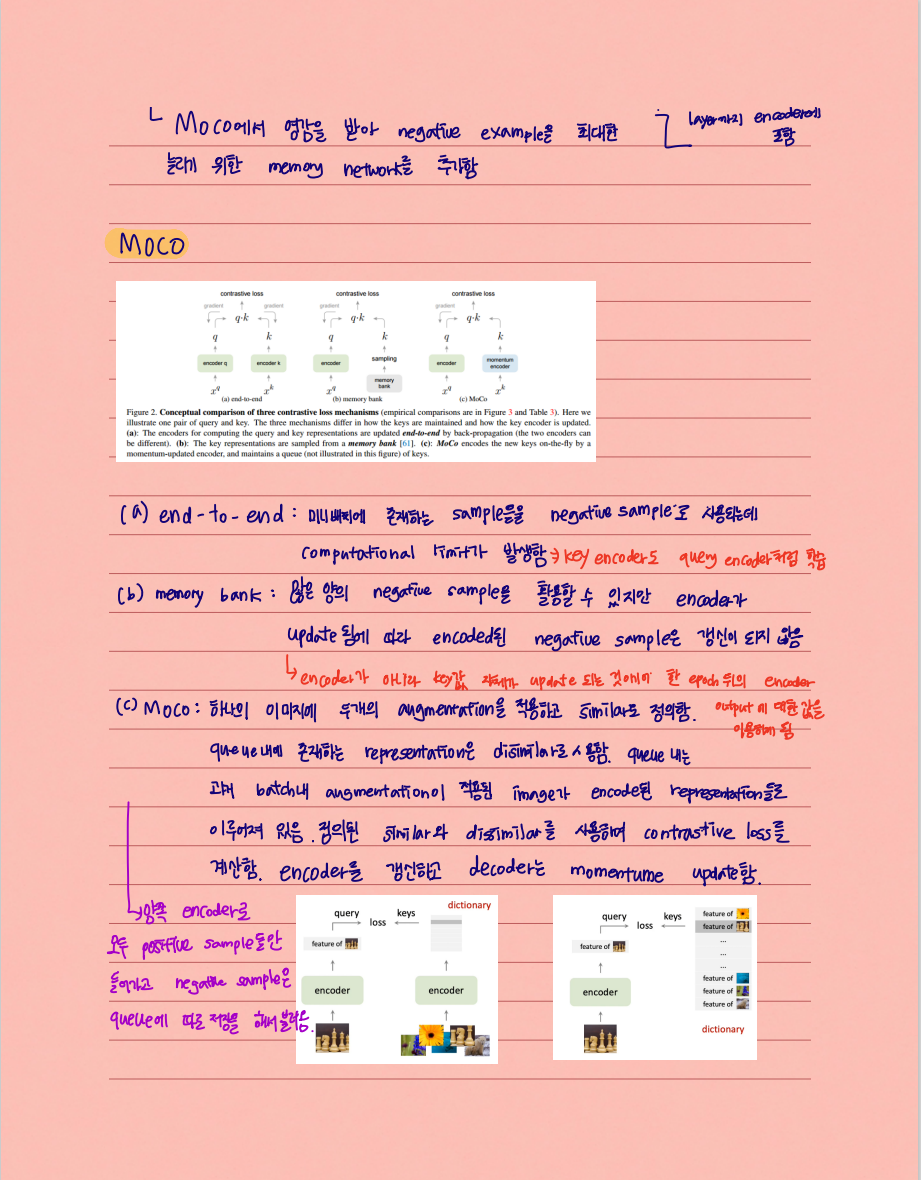 ㄴ MoCo에서 영감을 받아 negative example을 최대한
늘리기 위한 memory network를 추가함
layer까지 encoder에
포함
MOCO
contrastive loss contrastive loss contrastive loss
gradient gradient gradient gradient
q·k q·k q·k
q k q k q k
encoder q encoder k encoder sampling encoder momentum encoder
memory bank
x^q x^k x^q x^q x^k
(a) end-to-end (b) memory bank (c) MoCo
Figure 2. Conceptual comparison of three contrastive loss mechanisms (empirical comparisons are in Figure 3 and Table 3). Here we
illustrate one pair of query and key. The three mechanisms differ in how the keys are maintained and how the key encoder is updated.
(a): The encoders for computing the query and key representations are updated end-to-end by back-propagation (the two encoders can
be different). (b): The key representations are sampled from a memory bank [61]. (c): MoCo encodes the new keys on-the-fly by a
momentum-updated encoder, and maintains a queue (not illustrated in this figure) of keys.
(a) end-to-end : 미니배치에 존재하는 sample들을 negative sample로 사용되는데
computational limit가 발생함 → key encoder도 query encoder처럼 학습
(b) memory bank : 많은 양의 negative sample을 활용할 수 있지만 encoder가
update 됨에 따라 encoded된 negative sample은 갱신이 되지 않음
↳ encoder가 아니라 key값 자체가 update 되는 것이며 한 epoch 뒤의 encoder
output에 대한 값을
이용하게 됨
(c) MoCo : 하나의 이미지에 두개의 augmentation을 적용하고 similar로 정의함.
queue내에 존재하는 representation은 disimilar로 사용함. queue 내는
과거 batch내 augmentation이 적용된 image가 encode된 representation들로
이루어져 있음. 정의된 similar와 dissimilar를 사용하여 contrastive loss를
계산함. encoder를 갱신하고 decoder는 momentume update함.
↳ 양쪽 encoder로
모두 positive sample들만
들어가고 negative sample은
queue에 따로 저장을 해서 불러옴.
query keys dictionary
loss
feature of
encoder encoder
query keys
loss
feature of
encoder
feature of
feature of
...
...
feature of
feature of
feature of
dictionary